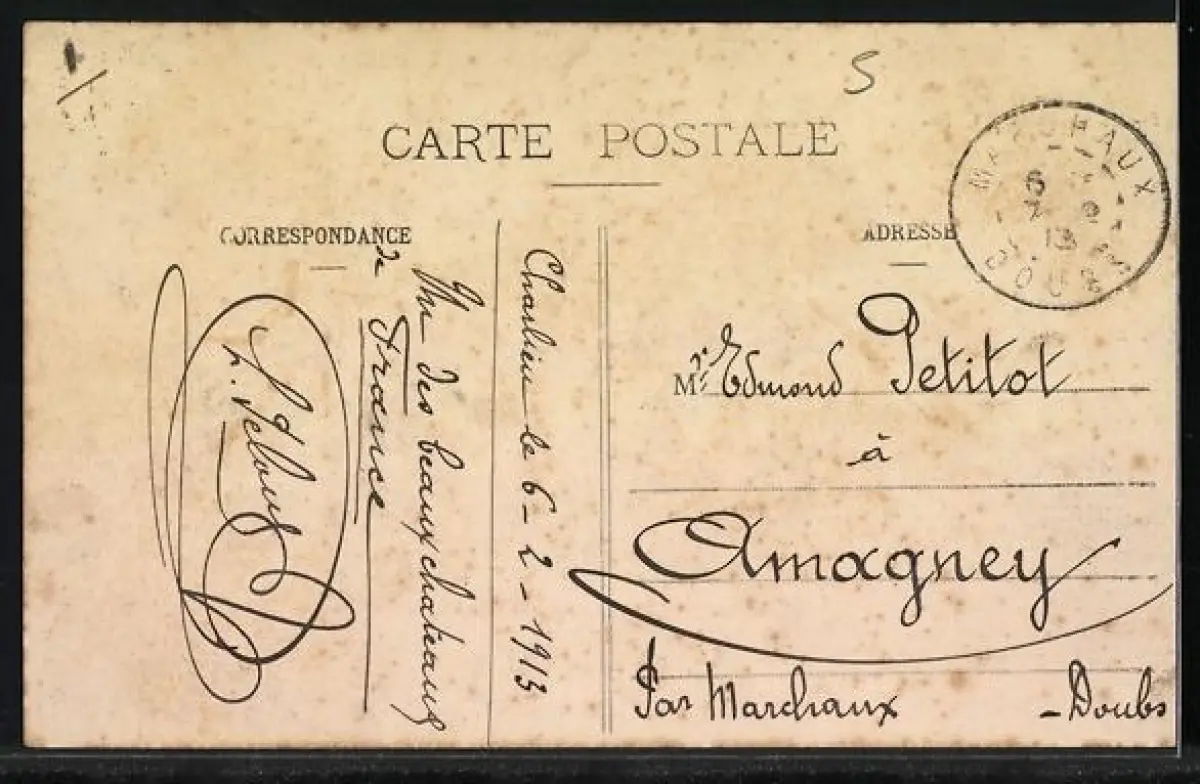 S
CARTE POSTALE
CORRESPONDANCE
Charlieu le 6-2-1913
Un des beaux chateaux
de France
ADRESSE
MARCHAUX
6
2
13
DOUBS
Mr. Edmond Petitot
à
Amagney
Par Marchaux - Doubs